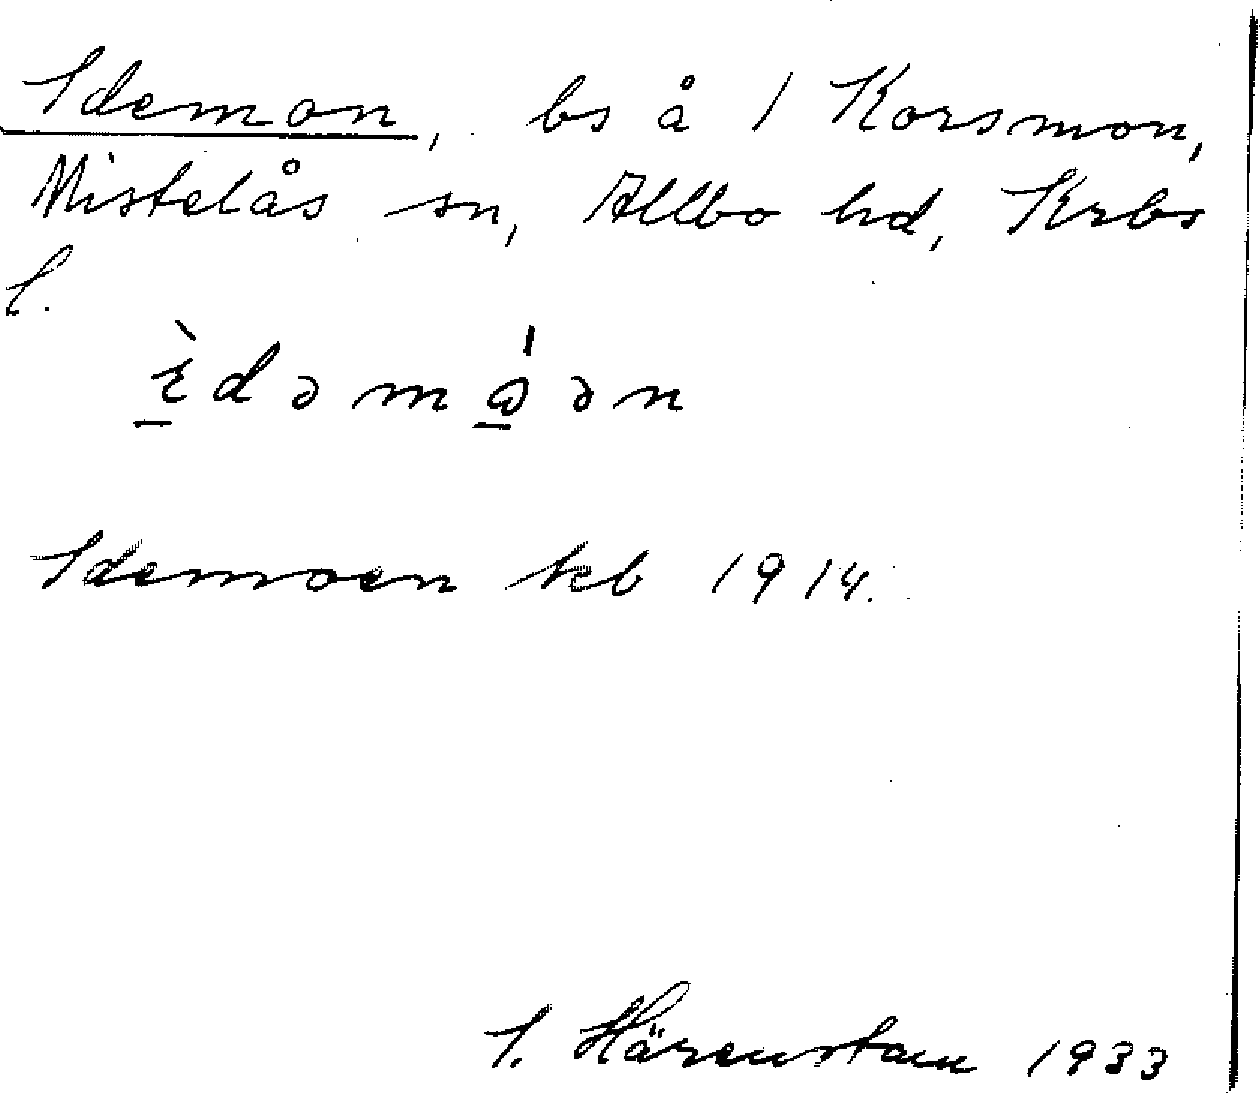 Idemon, bs å 1 Korsmon,
Mistelås sn, Allbo hd, Krbs
l.
Idemoen kb 1914.
I. Härenstam 1933